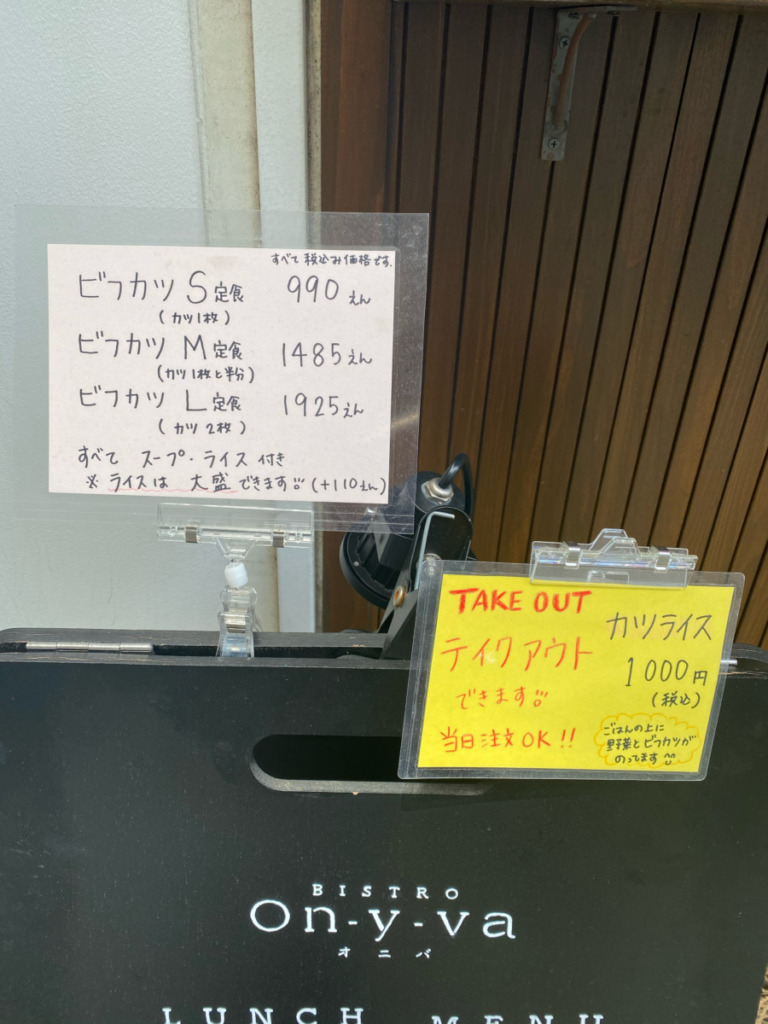 すべて税込み価格です。
ビフカツ S 定食 990 えん
(カツ1枚)
ビフカツ M 定食 1485 えん
(カツ1枚と半分)
ビフカツ L 定食 1925 えん
(カツ2枚)
すべて スープ・ライス 付き
※ ライスは 大盛できます (+110えん)
TAKE OUT
テイクアウト
できます
当日注文OK!!
カツライス
1000円
(税込)
ごはんの上に
野菜とビフカツが
のってます
BISTRO
on-y-va
オニバ
LUNCH MENU